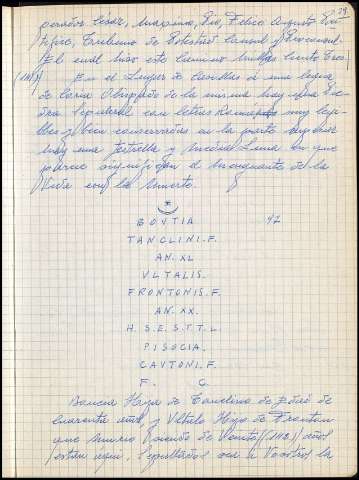 39
perador César, Maximo, Pio, Felice Augusto Pon
tifice, Tribuno de Potestad Consul y Proconsul.
El cual hizo este Camino millas Ciento Tres
(118) En el Lugar de Casillas á una legua
de Coria Obispado de la misma hay una Pie
dra Sepulcral con letras Romanas muy legi-
bles y bien conservadas en la parte superior
hay una Estrella y media Luna en que
parece significan el menguante de la
Vida con la Muerte.
BOVTIA 42
TANCLINI.F.
AN. XL
VLTALIS.
FRONTONIS.F.
AN. XX.
H. S. E. S. T. T. L.
PISOCIA.
CAVTONI.F.
F. C.
Hija de Tanclino de Edad de
Cuarenta años, y Vltalo Hijo de Frontan
que murio siendo de Veinte (118) años
estan aqui Sepultados sea a Vosotros la